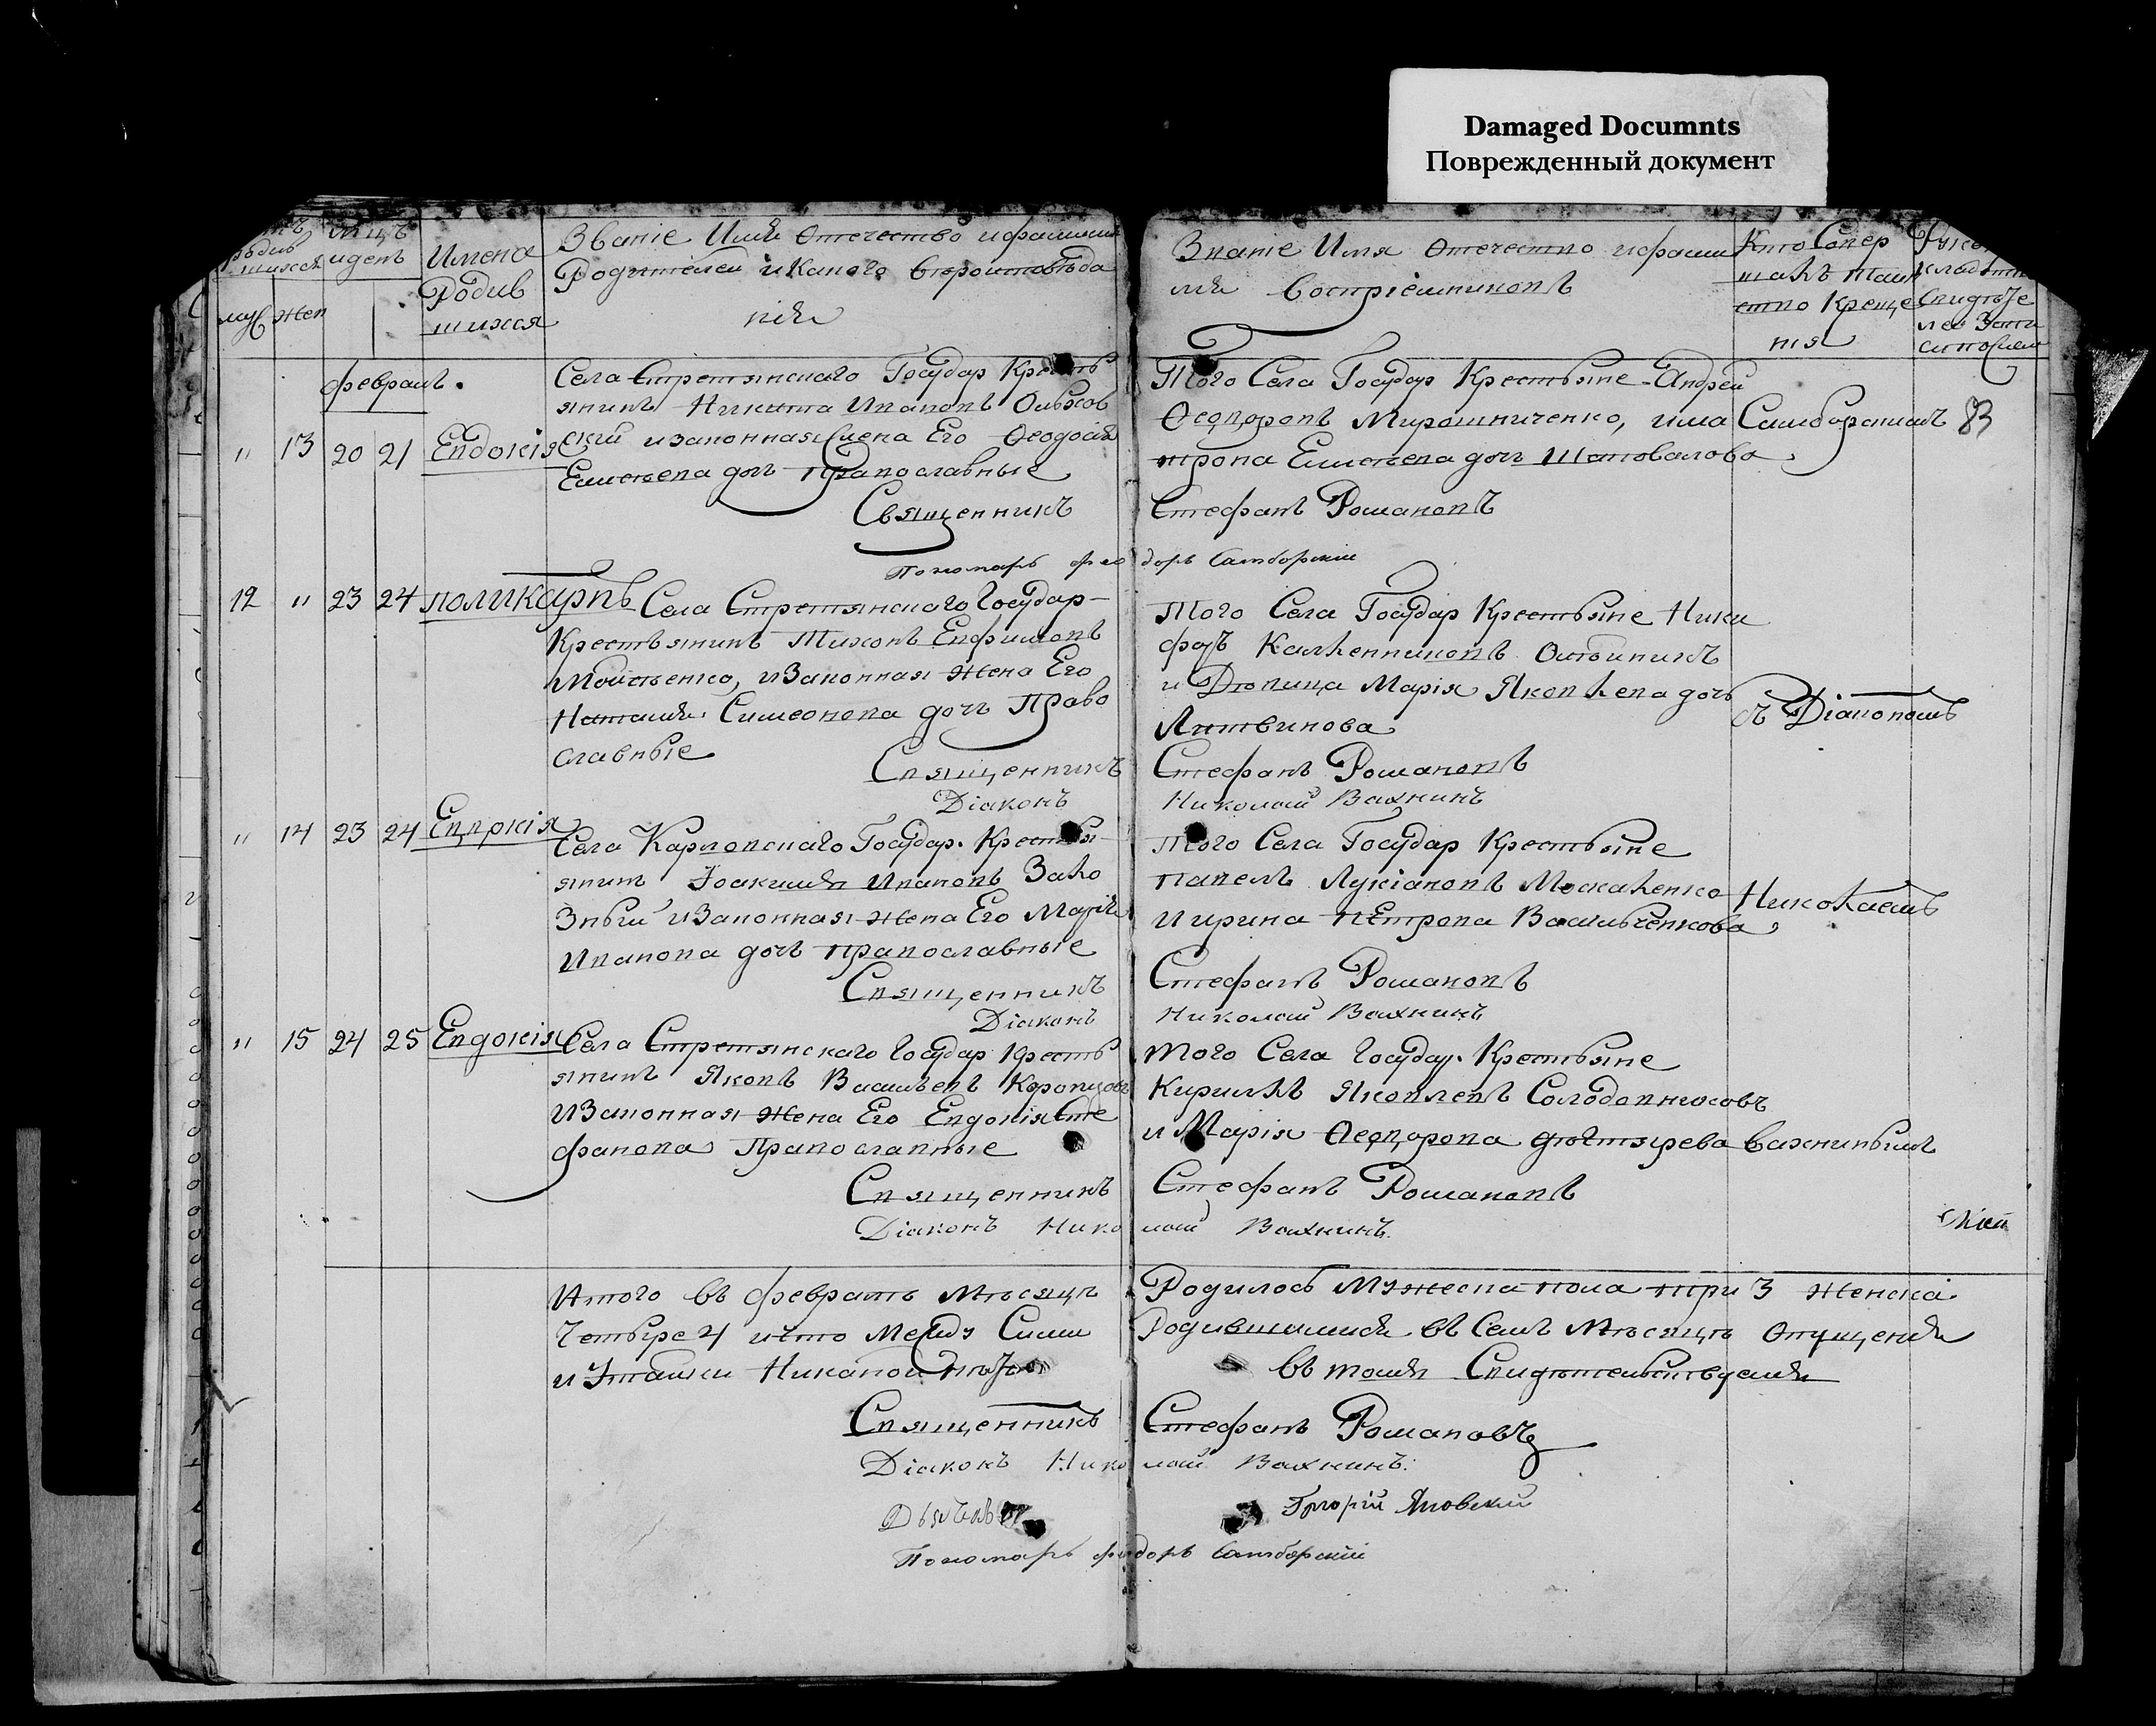 Damaged Documnts
Поврежденный документ
мцъ
родив
шихся
и день
муж
жен
Имена
Родив
шихся
Званіе Имя Отечество и фамилія
Родителей и Какого вероисповѣда
нія
Званіе Имя Отечество и фами
лія Воспріемниковъ
Кто Совер
шалъ Таин
ство Креще
нія
Свидѣте
февраль.
" 13 20 21 Евдокія
Села Стретинскаго Государ Кресть
янинъ Никита Ивановъ Ольхов
ский изаконная Жена Его Феодосія
Елисѣева дочь Православные
Священникъ
Того Села Государ Крестьяне Андрей
Феодоровъ Мирошниченко, има
трона Елисѣева дочь Шаповалова
Стефанъ Романовъ
Самборскимъ
83
Пономарь феодоръ Самборскій
12 " 23 24 поликарпъ
Села Стретинскаго Государ-
Крестьянинъ Тихонъ Евфимовъ
Мойсѣенко, и Законная жена Его
Наталія Симеонова дочь Право
славные
Священникъ
Діаконъ
Того Села Государ Крестьяне Ники
форъ Калленниковъ Олѣйникъ
и Дѣвица Марія Яковлева дочь
Литвинова
Стефанъ Романовъ
Николай Вахнинъ
съ Діакономъ
" 14 23 24 Евдокія
Села Карловскаго Государ. Кресть
янинъ Іоакимъ Ивановъ Зало
Зный и Законная жена Его Марія
Иванова дочь православные
Священникъ
Діаконъ
Того Села Государ Крестьяне
Павелъ Лукіановъ Москаленко
и ирина Петрова Васильченкова
Стефанъ Романовъ
Николай Вахнинъ
Николаемъ
" 15 24 25 Евдокія
Села Стретинскаго Государ Кресть
янинъ Яковъ Васильевъ
и Законная жена Его Евдокія Сте
фанова Православные
Священникъ
Діаконъ Нико
того Села Государ. Крестьяне
Кириллъ Яковлевъ Солодовниковъ
и Марія Феодорова дѣхтярева
Стефанъ Романовъ
лай Вахнинъ.
Вахнинымъ
Итого въ февралѣ Мѣсяцѣ
Четыре 4 и что Между Сими
и Утайки Никакой нѣтъ
Родилось Мужеска пола три 3 женска
Родившимися въ Семъ Мѣсяцѣ Опущенія
въ томъ Свидѣтельствуемъ
Священникъ Стефанъ Романовъ
Діаконъ Николай Вахнинъ.
Дьячекъ Григорій Яновский
Пономарь феодоръ Самборскій